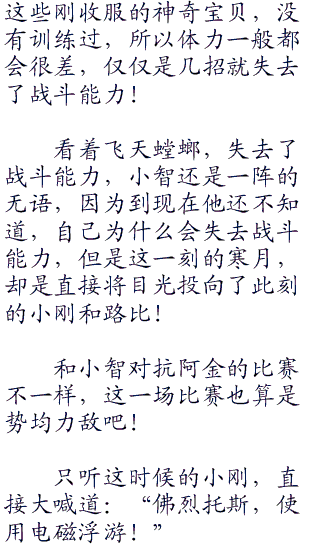 这些刚收服的神奇宝贝，没
有训练过，所以体力一般都
会很差，仅仅是几招就失去
了战斗能力！
看着飞天螳螂，失去了
战斗能力，小智还是一阵的
无语，因为到现在他还不知
道，自己为什么会失去战斗
能力，但是这一刻的寒月，
却是直接将目光投向了此刻
的小刚和路比！
和小智对抗阿金的比赛
不一样，这一场比赛也算是
势均力敌吧！
只听这时候的小刚，直
接大喊道：“佛烈托斯，使
用电磁浮游！”